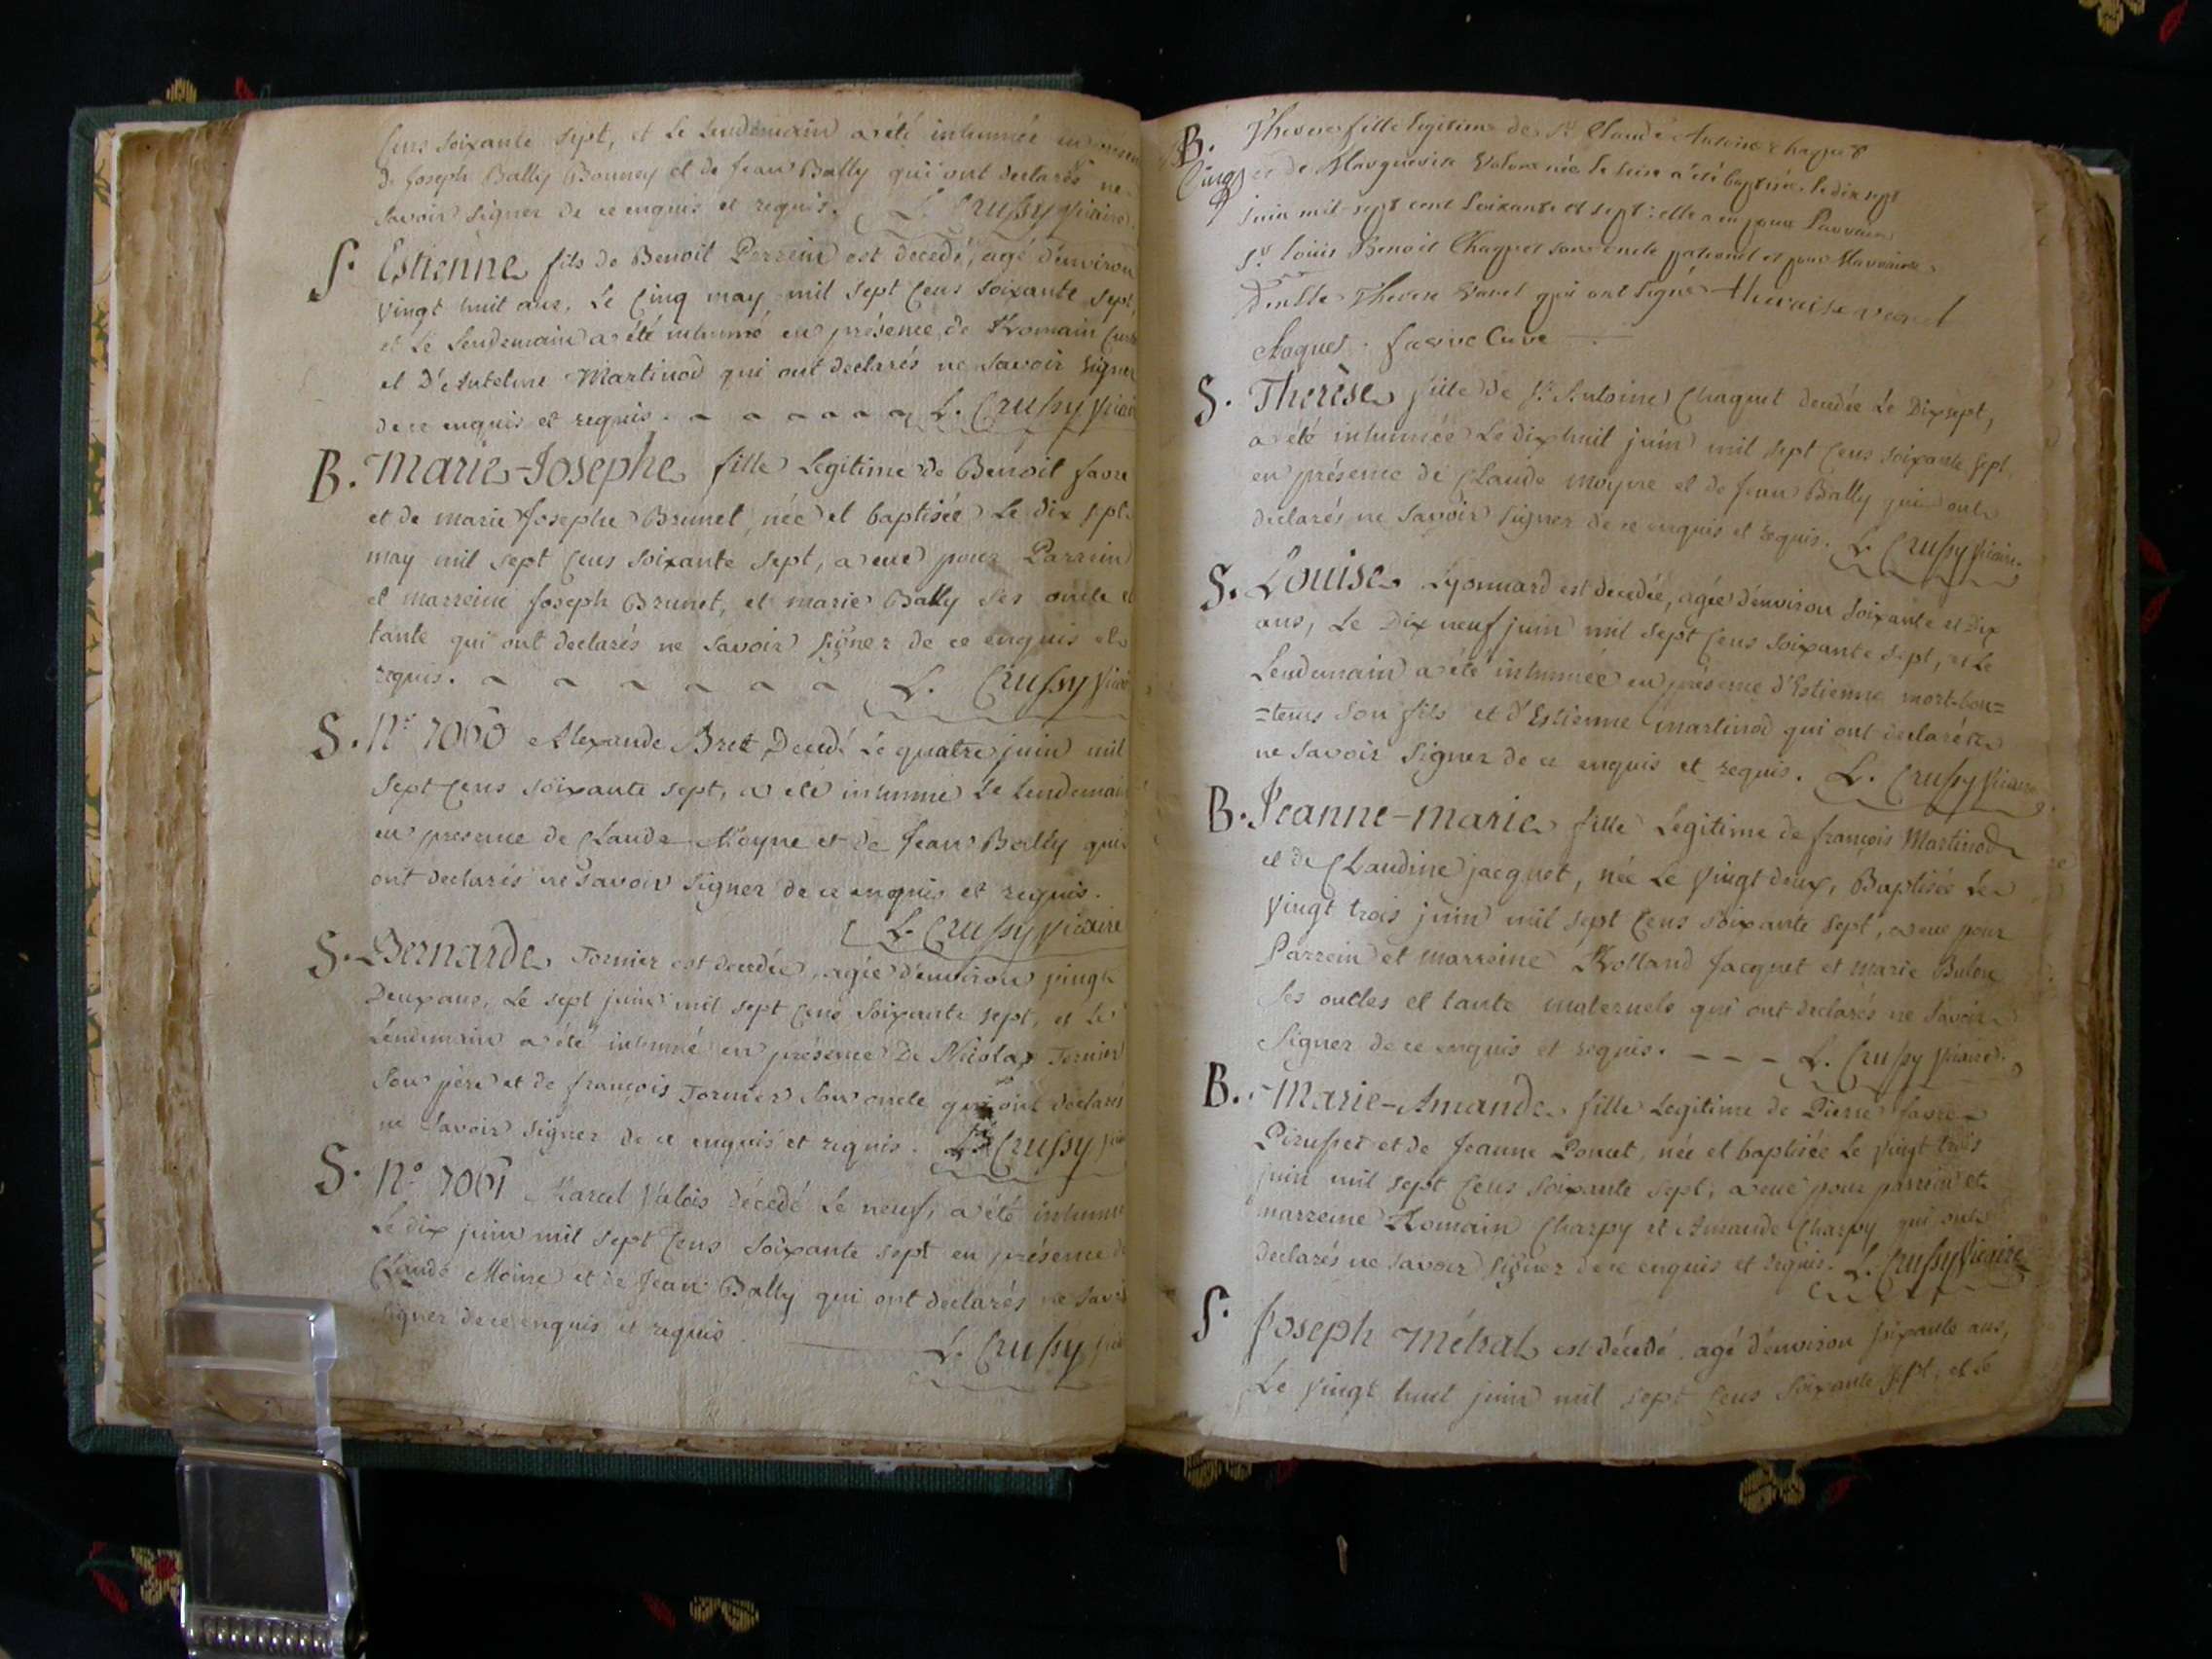 Cens soixante sept, et Le Lendemain a été inhumée en
de Joseph Bally Bonney et de Jean Bally qui ont declarés ne
savoir signer de ce enquis et requis. L. Crussy vicaire
S. Estienne fils de Benoit Perrein est decedé, agé d'environ
vingt huit ans, Le Cinq may mil sept Cens soixante sept,
et Le Lendemain a été inhumé en présence de Romain
et D'Antelme Martinod qui ont declarés ne savoir signer
de ce enquis et requis. L. Crussy vicai
B. Marie-Josephe fille Legitime de Benoit favre
et de marie Josephe Brunet, née et baptisée Le dix sept
may mil sept Cens soixante sept, a eue pour Parrein
et marreine Joseph Brunet, et marie Bally ses oncle et
tante qui ont declarés ne savoir signer de ce enquis et
requis. L. Crussy vicai
S. N.º 7060 Alexandre Bret Decedé Le quatre juin mil
sept Cens soixante sept, a été inhumé Le Lendemain
en presence de Claude Moyne et de Jean Bally qui
ont declarés ne savoir signer de ce enquis et requis.
L. Crussy vicaire
S. Bernarde Tornier est decedée, agée d'environ vingt
Deux ans, Le sept juin mil sept Cens soixante sept, et Le
Lendemain a été inhumé en présence De Nicolas Tornier
son père et de françois Tornier son oncle qui ont declarés
ne savoir signer de ce enquis et requis. L. Crussy
S. N.º 7061 Marcel Valois décedé Le neuf, a été inhumé
Le dix juin mil sept Cens soixante sept en présence de
Claude Moine et de Jean Bally qui ont declarés ne savoir
signer de ce enquis et requis L. Crussy
B. Therese fille legitime de Sr Claude Antoine Chaquet
et de Marguerite née le seize a été baptisée le dix sept
juin mil sept cent soixante et sept : elle a eu pour Parrain
Sr louis Benoit Chaquet son oncle paternel et pour Marraine
Therese Varel qui ont signé
Chaquet. favre Curé
S. Therèse fille de Sr Antoine Chaquet decedée Le Dix sept,
a été inhumée Le dix huit juin mil sept Cens soixante sept
en présence de Claude moyne et de Jean Bally qui ont
declarés ne savoir signer de ce enquis et requis. L. Crussy vicaire.
S. Louise Lyonnard est decedée, agée d'environ soixante et Dix
ans, Le Dix neuf juin mil sept Cens soixante sept, et Le
Lendemain a été inhumée en présence d'Estienne mort-bon=
=tems son fils et d'Estienne martinod qui ont declarés
ne savoir signer de ce enquis et requis. L. Crussy vicaire
B. Jeanne-marie fille Legitime de françois Martinod
et de Claudine jacquet, née Le vingt deux, Baptisée Le
vingt trois juin mil sept Cens soixante sept, a eue pour
Parrein et marreine Rolland Jacquet et marie
ses oncles et tante maternels qui ont declarés ne savoir
signer de ce enquis et requis. L. Crussy vicaire.
B. Marie-Amande fille Legitime de Pierre favre
et de Jeanne Poncet, née et baptisée Le vingt trois
juin mil sept Cens soixante sept, a eue pour parrein et
marreine Romain Charpy et Amande Charpy qui ont
declarés ne savoir signer de ce enquis et requis. L. Crussy vicaire
S. Joseph Métral est décedé, agé d'environ soixante ans,
Le vingt huit juin mil sept Cens soixante sept, et Le